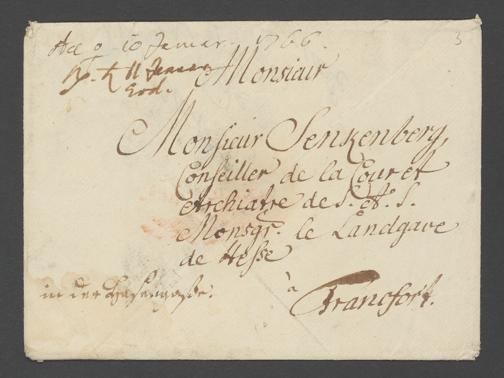 Acc. 10 Januar. 1766.
Rp. d. 11 Januar
Eod.
3
Monsieur
Monsieur Senkenberg,
Conseiller de la Cour et
Archiatre de S. A. S.
Monsgr. le Landgave
de Hesse
à
Francfort.
in der Hasengasse.